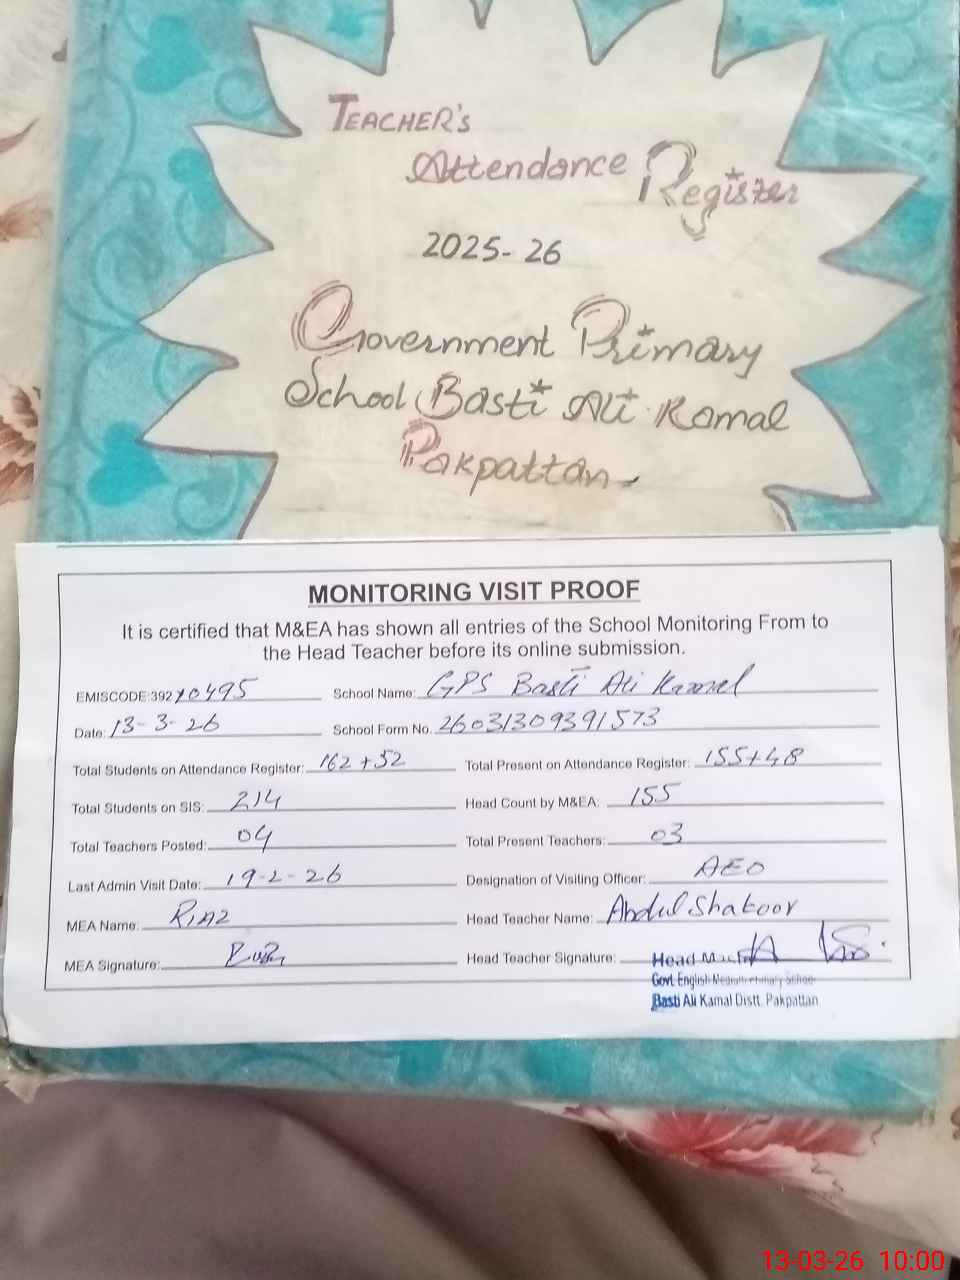 TEACHER's
Attendance Register
2025-26
Government Primary
School Basti Ali Kamal
Pakpattan
MONITORING VISIT PROOF
It is certified that M&EA has shown all entries of the School Monitoring From to
the Head Teacher before its online submission.
EMISCODE:392 10495 School Name: GPS Basti Ali Kamal
Date: 13-3-26 School Form No. 26031309391573
Total Students on Attendance Register: 162+52 Total Present on Attendance Register: 155+48
Total Students on SIS: 214 Head Count by M&EA: 155
Total Teachers Posted: 04 Total Present Teachers: 03
Last Admin Visit Date: 19-2-26 Designation of Visiting Officer: AEO
MEA Name: RIAZ Head Teacher Name: Abdul Shakoor
MEA Signature: Head Teacher Signature:
Head
Govt. English Medium Primary School
Basti Ali Kamal Distt. Pakpattan
13-03-26 10:00